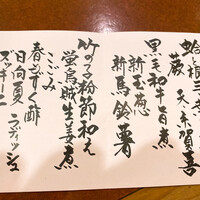 蕨 天子賀喜
黒毛和牛旨煮
新玉葱
新馬鈴薯
竹の子粉節和え
蛍烏賊生姜煮
こごみ
春もずく酢
日向夏 ラディッシュ
ズッキーニ